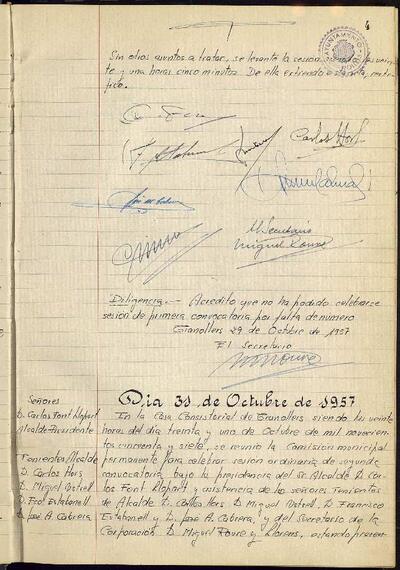 Sin otros asuntos a tratar, se levanta la sesión siendo las vein-
te y una horas cinco minutos. De ella extiendo este acta, certi-
fico.
Carlos Font
El Secretario
Miguel Roure
Diligencia.- Acredito que no ha podido celebrarse
sesión de primera convocatoria por falta de número
Granollers 29 de Octubre de 1957
El Secretario
Dia 31 de Octubre de 1957
Señores
D. Carlos Font Llopart
Alcalde-Presidente
Tenientes Alcalde
D. Carlos Hors
D. Miguel Ustrell
D. Fco. Estabanell
D. José A. Cabrera
En la Casa Consistorial de Granollers, siendo las veinte
horas del día treinta y uno de Octubre de mil novecien-
tos cincuenta y siete, se reunió la Comisión municipal
permanente para celebrar sesión ordinaria de segunda
convocatoria, bajo la presidencia del Sr. Alcalde D. Car-
los Font Llopart y asistencia de los señores Tenientes
de Alcalde D. Carlos Hors, D. Miguel Ustrell, D. Francisco
Estabanell y D. José A. Cabrera, y del Secretario de la
Corporación D. Miguel Roure y Llorens, estando presen-